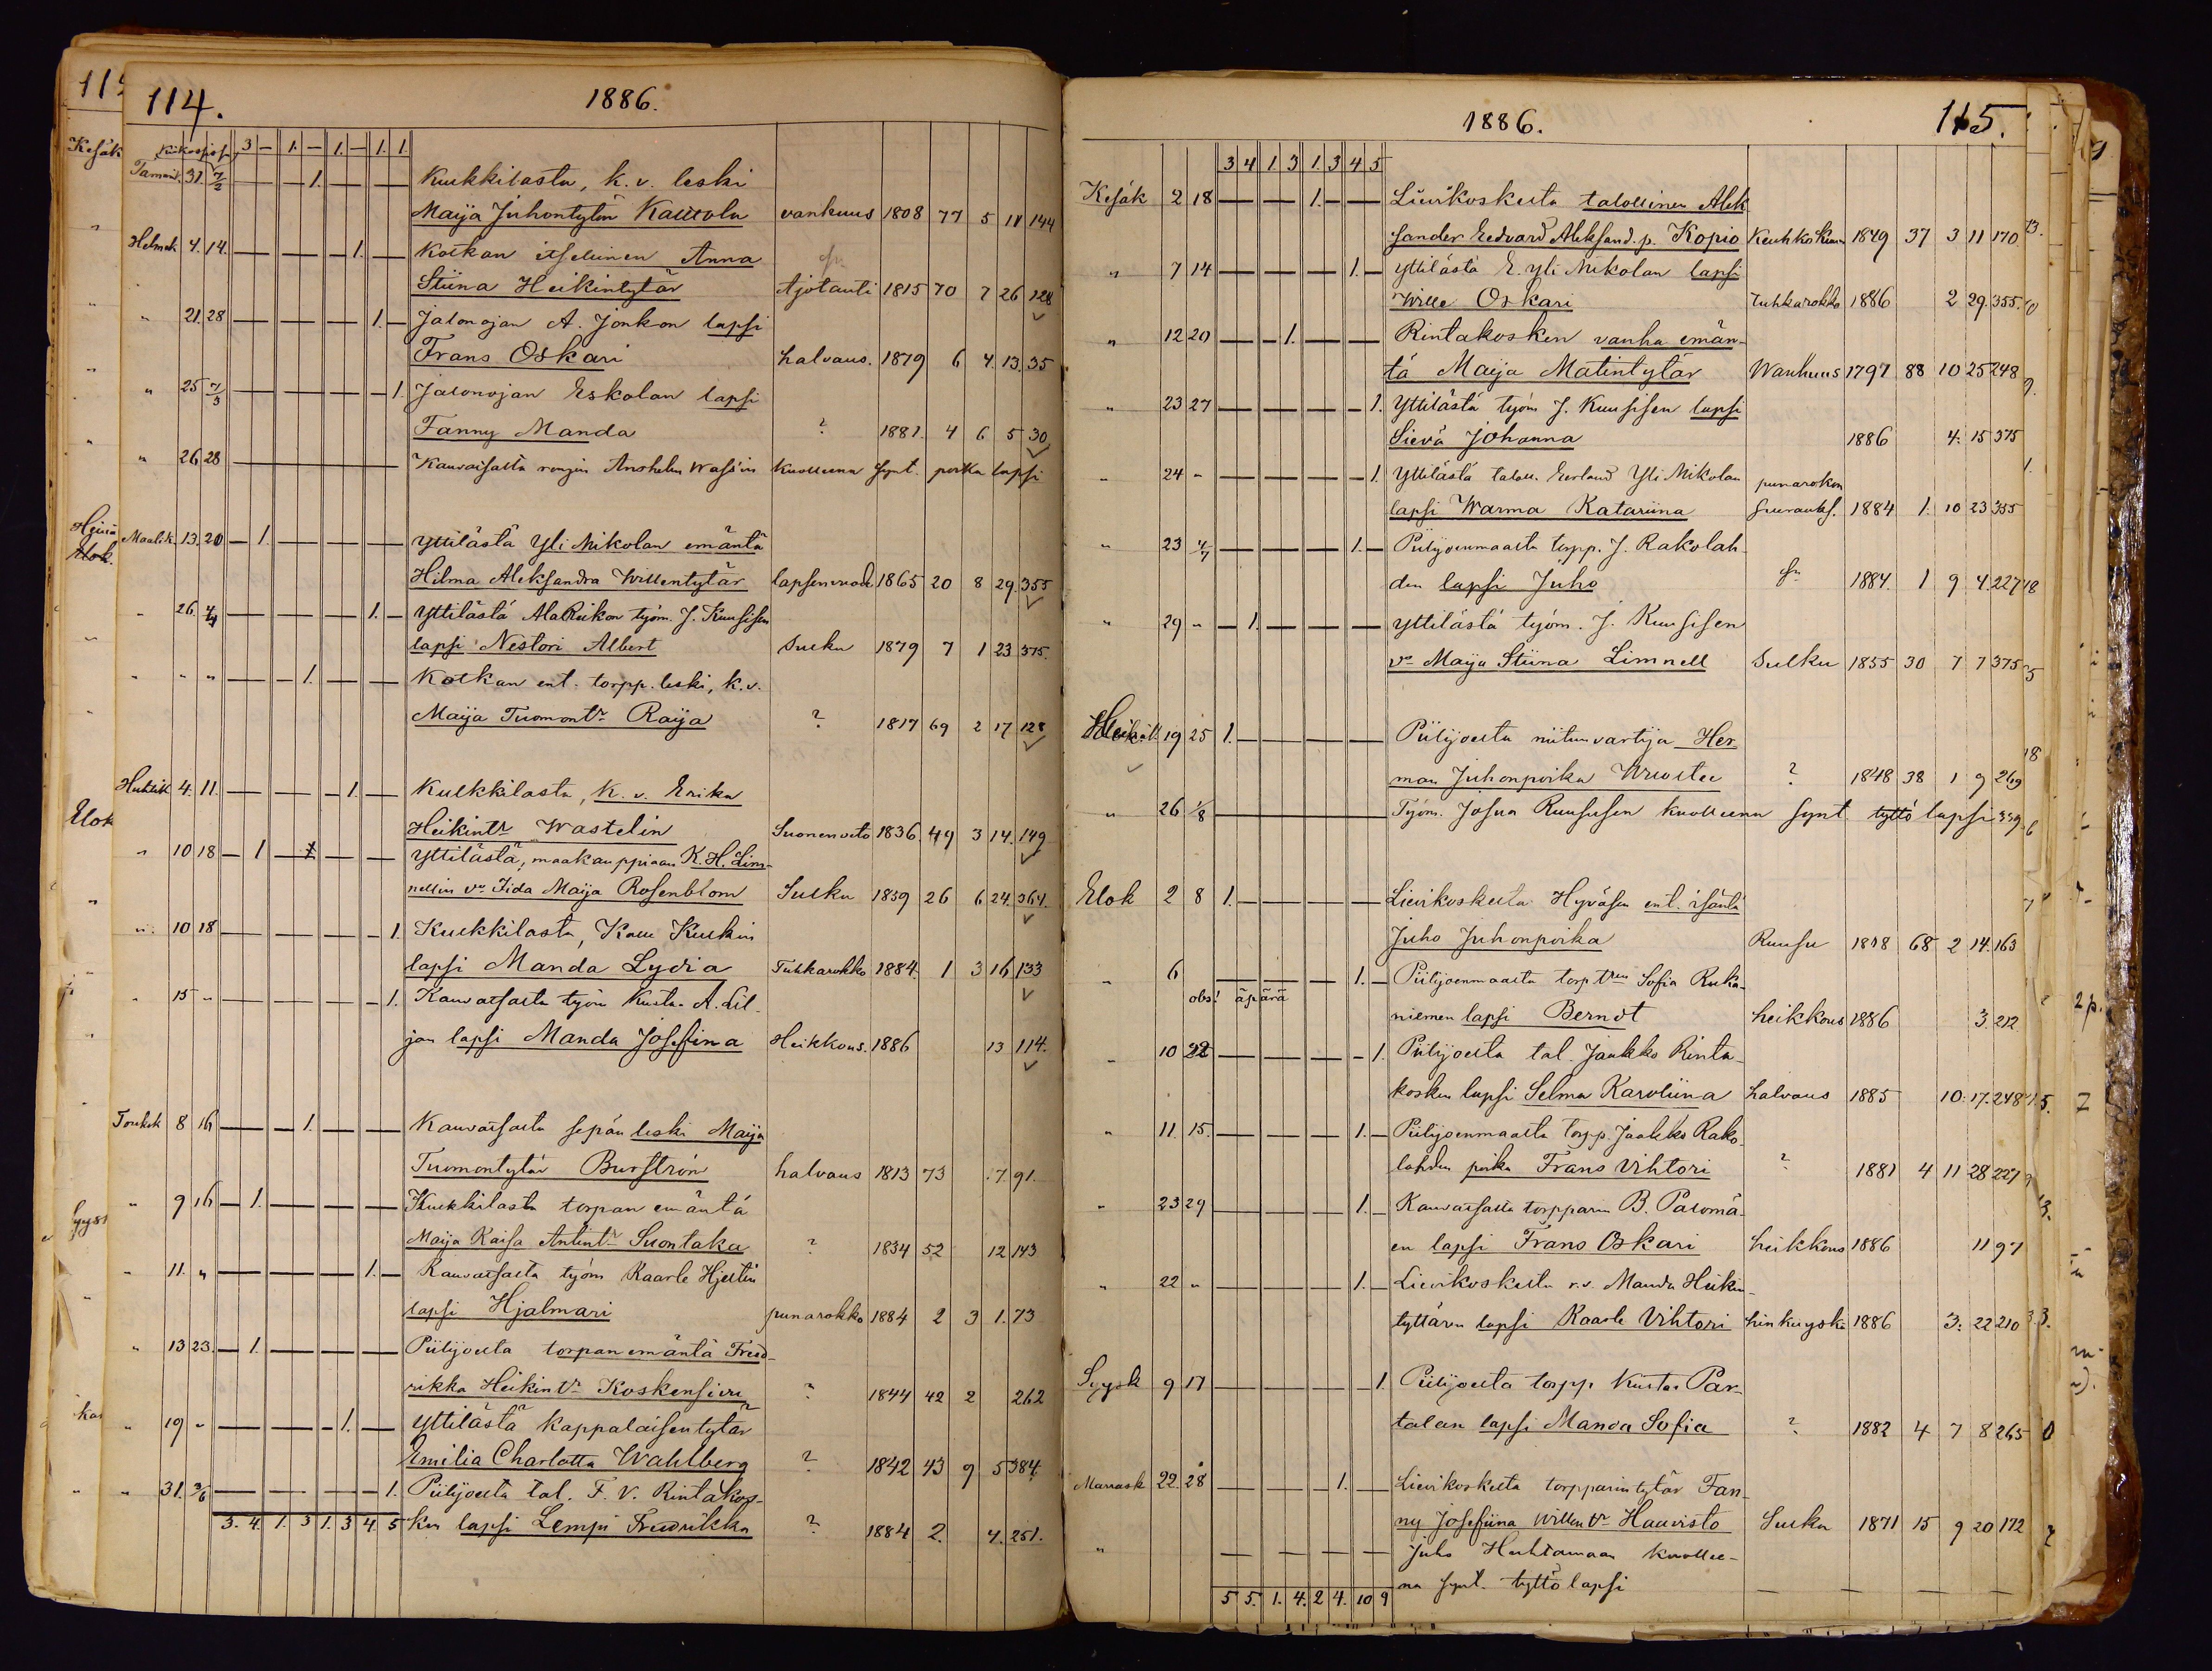 114.
1886.
3 – 1. – 1. – 1. 1.
Tammik. 31. 7/2 1. Kulkkilasta, k. v. leski
Maija Juhontytär Kallvola vanhuus 1808 77 5 11 144
Helmik. 4. 14. 1. Kotkan itsellinen Anna
Stiina Heikintytär Ajotauti 1815 70 7 26 128
" 21. 28 1. Jalonojan A. Jonkon lapsi
Frans Oskari halvaus. 1879 6 4 13. 35
" 25 7/3 1. Jalonojan Eskolan lapsi
Fanny Manda ? 1881. 4 6 5 30
" 26 28 Kauvatsalta Anshelm Wass'in kuolleena synt. poika lapsi
Maalisk. 13. 20 1. Yttilästä Yli Mikolan emäntä
Hilma Aleksandra Willentytär lapsenvuod. 1865 20 8 29. 355
" 26 4/4 1. Yttilästä AlaRiikon työm. J. Kuusisen
lapsi Nestori Albert Sulku 1879 7 1 23 375.
" " " 1. Kotkan ent. torpp. leski, k. v.
Maija Tuomontr Raija ? 1817 69 2 17 128
Huhtik 4. 11. 1. Kulkkilasta, k. v. Erika
Heikintr Wastelin Suonenveto 1836. 49 3 14. 149
" 10 18 1 Yttilästä, maakauppiaan K. H. Lim-
nellin vo Iida Maija Rosenblom Sulku 1859 26 6 24. 364.
" 10 18 1. Kulkkilasta, Kalle Kulkin
lapsi Manda Lydia Tuhkarokko 1884. 1 3 16 133
" 15 " 1. Kauvatsalta työm Kusta A. Lil-
jan lapsi Manda Josefina Heikkous. 1886 13 114.
Toukok 8 16 1. Kauvatsalta sepän leski Maija
Tuomontytär Burström halvaus 1813 73 17. 91.
" 9 16 1. Kulkkilasta torpan emäntä
Maija Kaisa Antintr Suontaka ? 1834 52 12 143
" 11. " 1. Kauvatsalta työm Kaarle Hjeltin
lapsi Hjalmari punarokko 1884 2 3 1. 73
" 13 23. 1. Piilijoelta torpan emäntä Fred-
rikka Heikintr Koskensivu ? 1844 42 2 262
" 19 " 1. Yttilästä kappalaisen tytär
Emilia Charlotta Wahlberg ? 1842 43 9 5 384
" 31. 2/6 1. Piilijoelta tal. F. V. Rintakos-
ken lapsi Lempi Fredrikka ? 1884 2. 4. 251.
3. 4. 1. 3 1. 3 4. 5
1886.
115.
3 4 1. 3 1. 3 4. 5
Kesäk 2 18 1. Lievikoskelta talollinen Alek
sander Eedvard Aleksand. p. Kopio Keuhkokuum 1849 37 3 11 170
" 7 14 1. Yttilästä E. Yli Mikolan lapsi
Wille Oskari Tuhkarokko 1886 2 29. 355.
" 12 20 1. Rintakosken vanha emän-
tä Maija Matintytär Wanhuus 1797 88 10 25 248
" 23 27 1. Yttilästä työm J. Kuusisen lapsi
Sievä Johanna 1886 4. 15 375
" 24 – 1. Yttilästä taloll. Eerland Yli Mikolan punarokon
lapsi Warma Katariina seurauks. 1884 1. 10 23 355
" 23 4/7 1. Piilijoenmaalta torpp. J. Rakolah-
den lapsi Juho 1884. 1 9 4. 227
" 29 " 1. Yttilästä työm. J. Kuusisen
vo Maija Stiina Limnell Sulku 1855 30 7 7 375
Heinäk 19 25 1. Piilijoelta niitunvartija Her
man Juhonpoika ? 1848 38 1 9 269
" 26 1/8 Työm. Josua Ruususen kuolleena synt tyttö lapsi 339
Elok 2 8 1. Lievikoskelta Hyväsen ent. isäntä
Juho Juhonpoika Ruusu 1818 68 2 14. 163
" 6 1. Piilijoenmaalta torp. Sofia Ruka-
obs! äpärä
niemen lapsi Berndt heikkous 1886 3. 212
" 10 22 1. Piilijoelta tal. Jaakko Rinta-
kosken lapsi Selma Karoliina halvaus 1885 10. 17. 248
" 11. 15. 1. Piilijoenmaalta torpp. Jaakko Rako-
lahden poika Frans Vihtori ? 1881 4 11 28 227
" 23 29 1. Kauvatsalta torpparin B. Palomä-
en lapsi Frans Oskari heikkous 1886 11 97
" 22 " 1. Lievikoskelta r. v. Manda Heikin-
tyttären lapsi Kaarle Vihtori hinkuyskä 1886 3. 22 210
Syysk 9 17 1 Piilijoelta torpp. Kustaa Par-
talan lapsi Manda Sofia ? 1882 4 7 8 265
Marrask 22. 28 1. Lievikoskelta torpparin tytär Fan-
ny Josefiina Willentr Haavisto Sulku 1871 15 9 20 172
" Juho Huhtamaan kuollee-
na synt. tyttö lapsi
5 5. 1. 4. 2 4. 10 9